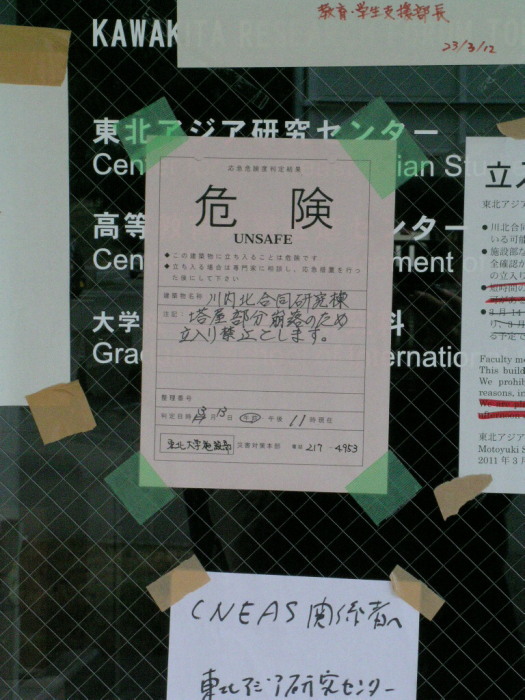 教育・学生支援部長
23/3/12
KAWAKITA RESEARCH
東北アジア研究センター
Cen
ian Stu
高等
ンター
Cen
ment of
大学
科
Grad
nternation
応急危険度判定結果
危 険
UNSAFE
◆この建築物に立ち入ることは危険です
◆立ち入る場合は専門家に相談し、応急措置を行っ
た後にして下さい
建築物名称 川内北合同研究棟
注記: 塔屋部分崩落のため
立入り禁止とします。
整理番号
判定日時 月13日 午前 午後 11時現在
東北大学施設部 災害対策本部 電話 217-4953
立入
東北アジ
● 川北合同
いる可能
● 施設部な
全確認が
の立入り
Faculty me
This build
We prohib
reasons, in
We are pl
afternoon
東北アジア
Motoyuki S
2011年3月
CNEAS 関係者へ
東北アジア研究センター